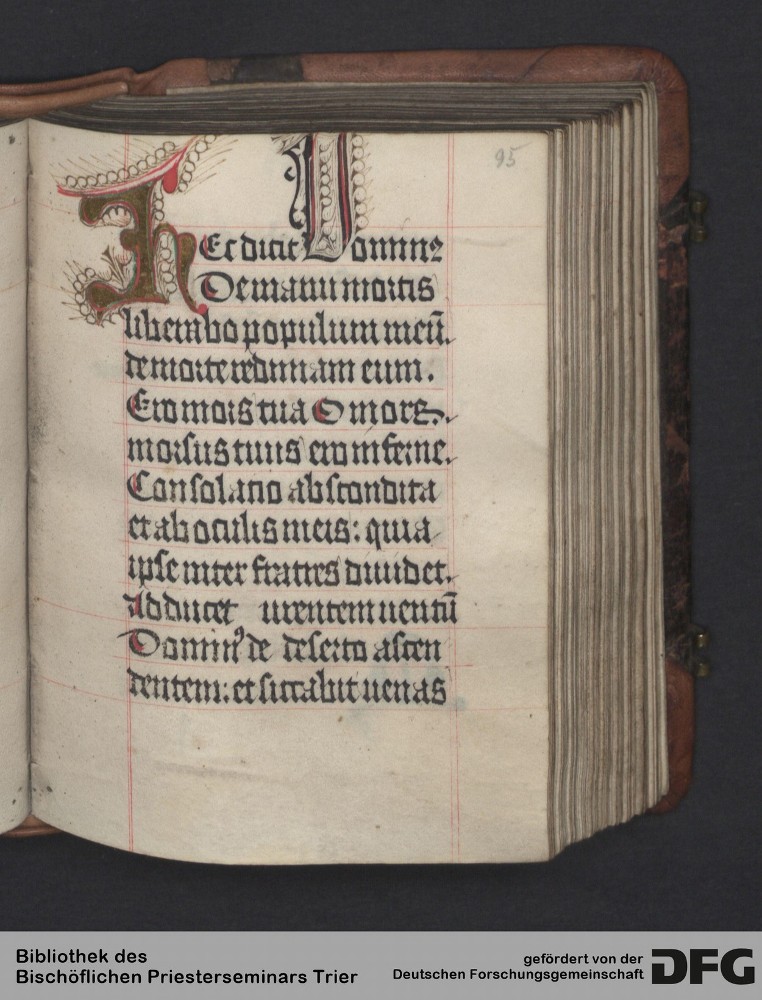 95
HEc dicit Domin9
De manu mortis
liberabo populum meū.
de morte redimam eum.
Ero mors tua O mors.
morsus tuus ero inferne.
Consolatio abscondita
est ab oculis meis: quia
ipse inter fratres diuidet.
Adducet urentem uentū
Domin9 de deserto ascen
dentem: et siccabit uenas
Bibliothek des
Bischöflichen Priesterseminars Trier
gefördert von der
Deutschen Forschungsgemeinschaft
DFG